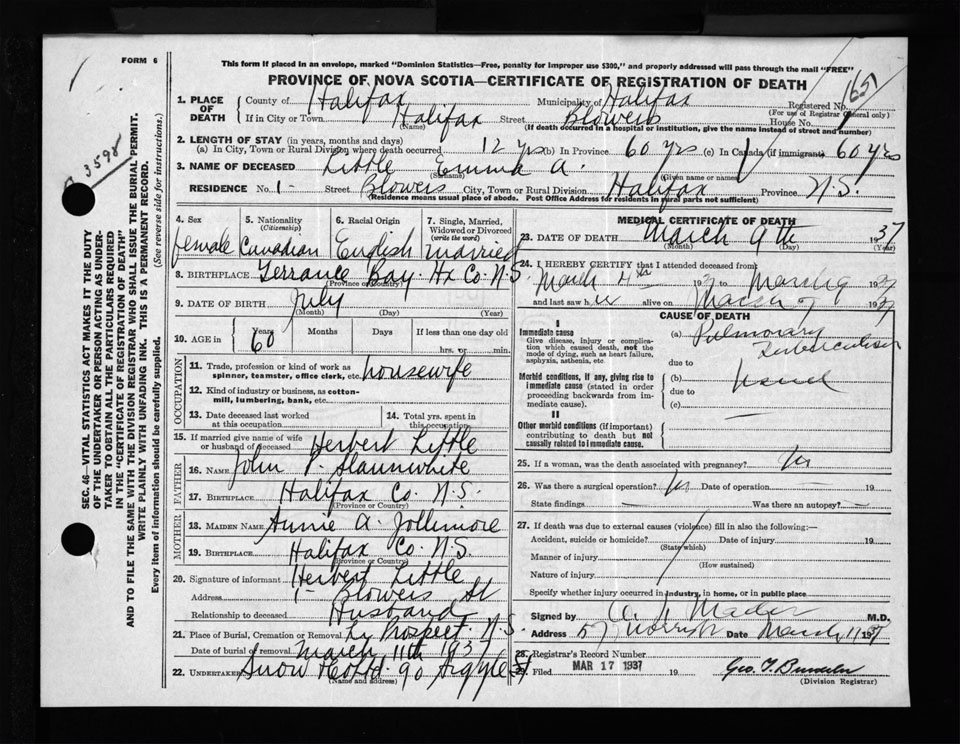 FORM 6
This form if placed in an envelope, marked "Dominion Statistics—Free, penalty for improper use $300," and properly addressed will pass through the mail "FREE"
PROVINCE OF NOVA SCOTIA—CERTIFICATE OF REGISTRATION OF DEATH
1651
3598
SEC. 46—VITAL STATISTICS ACT MAKES IT THE DUTY
OF THE UNDERTAKER OR PERSON ACTING AS UNDER-
TAKER TO OBTAIN ALL THE PARTICULARS REQUIRED
IN THE "CERTIFICATE OF REGISTRATION OF DEATH"
AND TO FILE THE SAME WITH THE DIVISION REGISTRAR WHO SHALL ISSUE THE BURIAL PERMIT.
WRITE PLAINLY WITH UNFADING INK. THIS IS A PERMANENT RECORD.
Every item of information should be carefully supplied. (See reverse side for instructions.)
1. PLACE OF DEATH County of Halifax Municipality of Halifax Registered No.
(For use of Registrar General only)
If in City or Town Halifax Street Blowers House No. 1
(Name) (If death occurred in a hospital or institution, give the name instead of street and number)
2. LENGTH OF STAY (in years, months and days)
(a) In City, Town or Rural Division where death occurred 12 yrs (b) In Province 60 yrs (c) In Canada (if immigrant) 60 yrs
3. NAME OF DECEASED Little Emma A.
(Surname) (Given name or names)
RESIDENCE No. 1 Street Blowers City, Town or Rural Division Halifax Province N.S.
(Residence means usual place of abode. Post Office Address for residents in rural parts not sufficient)
4. Sex 5. Nationality (Citizenship) 6. Racial Origin 7. Single, Married, Widowed or Divorced (write the word)
female Canadian English married
8. BIRTHPLACE Terrance Bay Hx Co. N.S.
(Province or Country)
9. DATE OF BIRTH July
(Month) (Day) (Year)
10. AGE in Years Months Days If less than one day old
60 hrs. or min.
OCCUPATION
11. Trade, profession or kind of work as spinner, teamster, office clerk, etc. housewife
12. Kind of industry or business, as cotton-mill, lumbering, bank, etc.
13. Date deceased last worked at this occupation 14. Total yrs. spent in this occupation
15. If married give name of wife or husband of deceased Herbert Little
FATHER
16. NAME John P. Slaunwhite
17. BIRTHPLACE Halifax Co. N.S.
(Province or Country)
MOTHER
18. MAIDEN NAME Annie A. Jollimore
19. BIRTHPLACE Halifax Co. N.S.
(Province or Country)
20. Signature of informant Herbert Little
Address 1 Blowers St
Relationship to deceased Husband
21. Place of Burial, Cremation or Removal Prospect N.S.
Date of burial or removal March 11th 1937
22. UNDERTAKER Snow Co Ltd 90 Argyle St
(Name and address)
MEDICAL CERTIFICATE OF DEATH
23. DATE OF DEATH March 9th 1937
(Month) (Day)
24. I HEREBY CERTIFY that I attended deceased from
March 4th 1937 to March 9 1937
and last saw her alive on March 9 1937
CAUSE OF DEATH
I
Immediate cause
Give disease, injury or complication which caused death, not the mode of dying, such as heart failure, asphyxia, asthenia, etc.
(a) Pulmonary Tuberculosis
due to
Morbid conditions, if any, giving rise to immediate cause (stated in order proceeding backwards from immediate cause).
(b)
due to
(c)
II
Other morbid conditions (if important) contributing to death but not causally related to immediate cause.
25. If a woman, was the death associated with pregnancy? No
26. Was there a surgical operation? No Date of operation 19
State findings Was there an autopsy?
27. If death was due to external causes (violence) fill in also the following:—
Accident, suicide or homicide? Date of injury 19
(State which)
Manner of injury
(How sustained)
Nature of injury
Specify whether injury occurred in industry, in home, or in public place
Signed by Mader M.D.
Address 57 Morris Date March 11 1937
28. Registrar's Record Number
29. Filed MAR 17 1937 19
(Division Registrar)